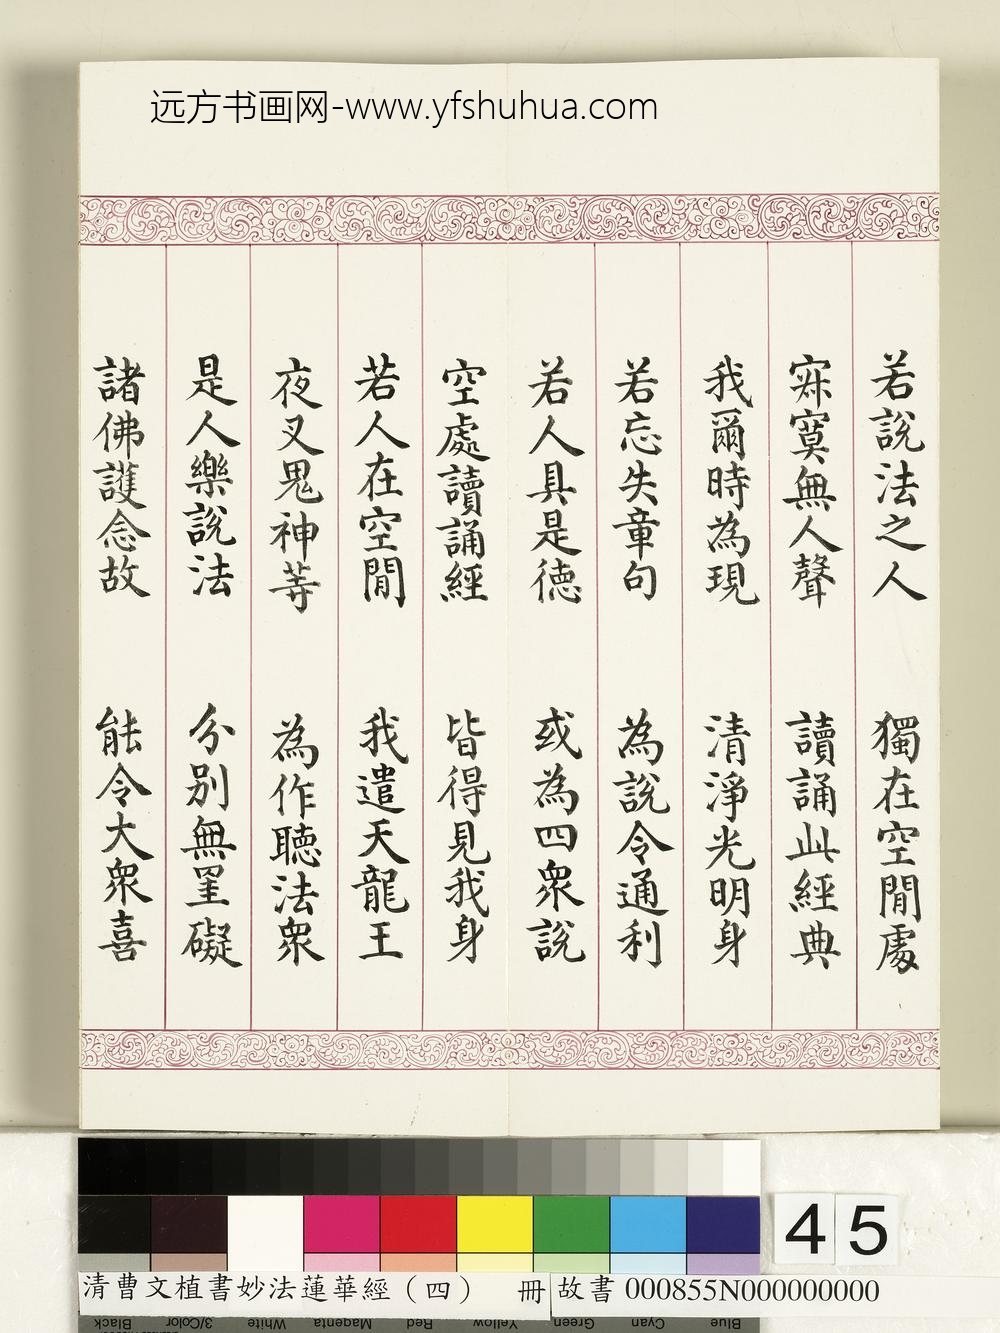 远方书画网-www.yfshuhua.com
若說法之人 獨在空閒處
寂寞無人聲 讀誦此經典
我爾時為現 清淨光明身
若忘失章句 為說令通利
若人具是德 或為四衆說
空處讀誦經 皆得見我身
若人在空閒 我遣天龍王
夜叉鬼神等 為作聽法衆
是人樂說法 分別無罣礙
諸佛護念故 能令大衆喜
45
清曹文植書妙法蓮華經（四） 冊
故書 000855N000000000
Black
3/Color
White
Magenta
Red
Yellow
Green
Cyan
Blue